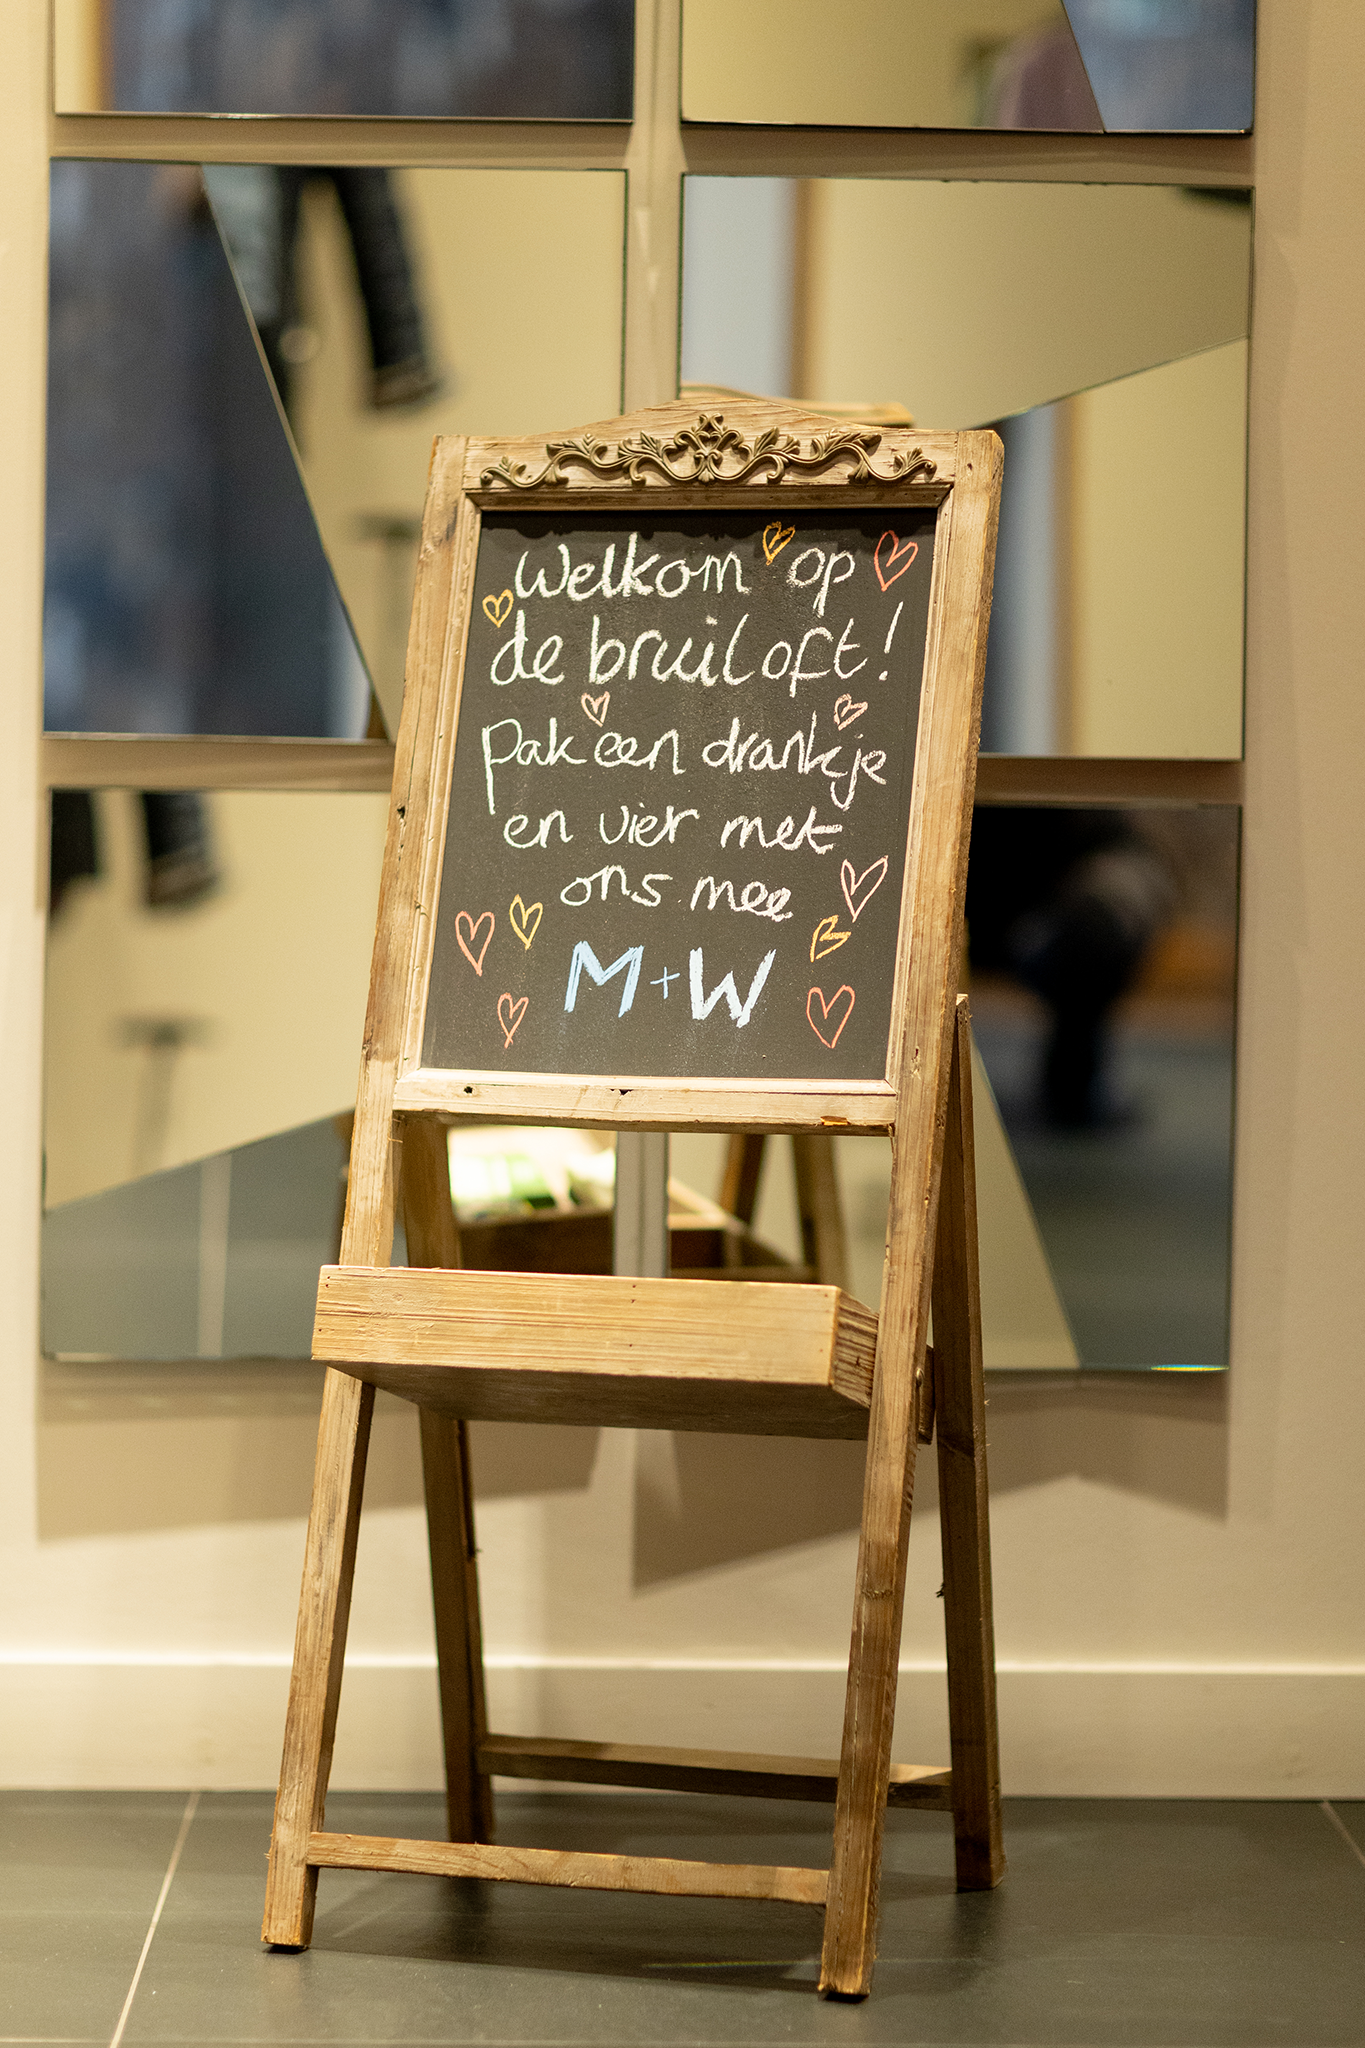 Welkom op
de bruiloft!
Pak een drankje
en vier met
ons mee
M+W